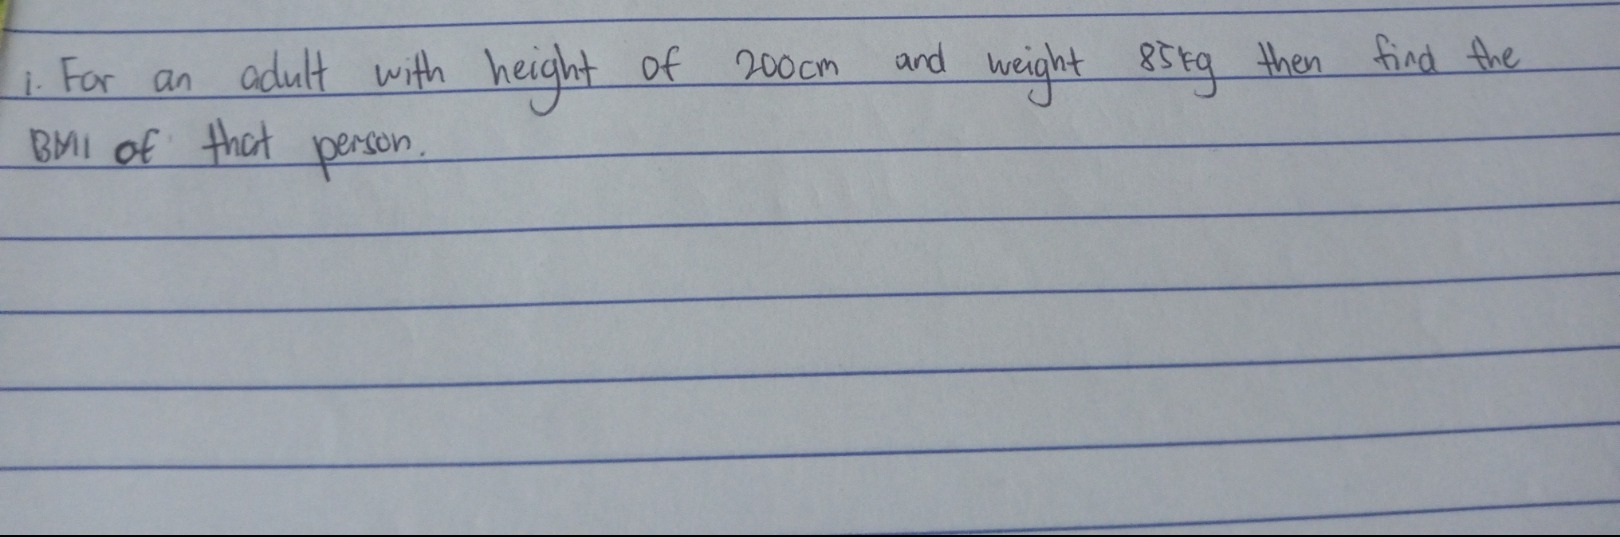 1. For an adult with height of 200cm and weight 85kg then find the
BMI of that person.